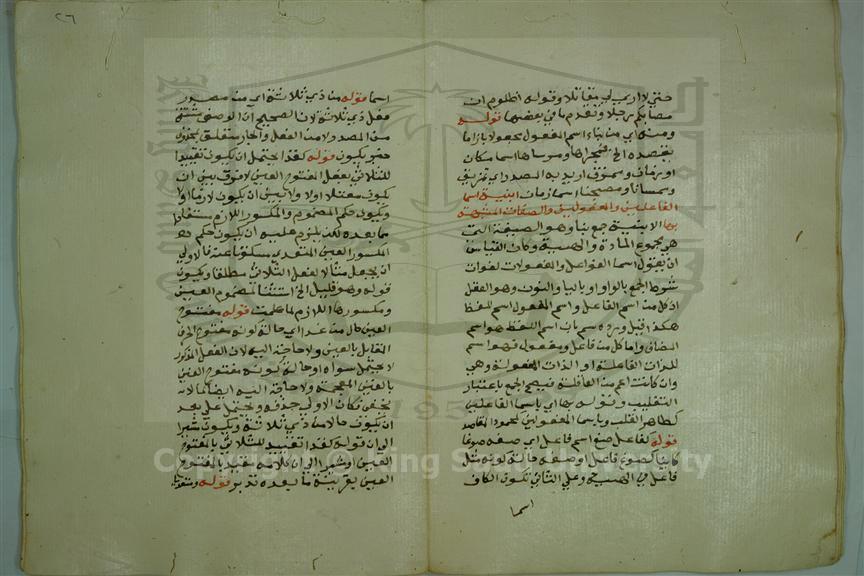 حتي لا اري لي مقاتلا وقوله اظلوم ان
مصابكم رجلا وتقدم ما في بعضها قوله
ومنه اي من بناء اسم المفعول مجعولا بازاء ما
يقصده الخ وموساها اسما مكان
او زمان وممزق اريد به المصدر اي تمزيق
وممسانا ومصبحنا اسما زمان ابنية اسما
الفاعلين والمفعولين والصفات المشبهة
بها الابنية جمع بنا وهو الصيغة التي
هي مجموع المادة والهيية وكان القياس
ان يقول اسما الفواعل والمفعولات لفوات
شرط الجمع بالواو او باليا والنون وهو العقل
اذ كل من اسم الفاعل واسم المفعول اسم للفظ
هكذا قيل ويرده سم بان اسم اللفظ هو اسم
المضاف واما كل من فاعل ومفعول فهو اسم
للذات الفاعلة او الذات المفعولة وهي
وان كانت اعم من العاقلة فيصح الجمع باعتبار
التغليب وقوله بها اي باسما الفاعلين
كطاهر القلب وباسما المفعولين كمحمود المقاصد
قوله كفاعل صغ اسم فاعل اي صغه صوغا
كاينا كصوغ فاعل او صغه حالة كونه مثل
فاعل في الهيية وعلي الثاني تكون الكاف
اسما
٢٦
اسما قوله من ذي ثلاثة اي من مصدر
فعل ذي ثلاثة لان الصحيح ان الوصف مشتق
من المصدر لا من الفعل والجار متعلق بمحذوف
خبر يكون قوله كغذا يحتمل ان يكون تقييدا
للثلاثي بفعل المفتوح العين لا فرق بين ان
يكون معتلا اولا ولا بين ان يكون لازما اولا
ويكون حكم المضموم والمكسور اللازم مستفادا
مما بعده لكن يلزم عليه ان يكون حكم
المكسور العين المتعدي مسكوتا عنه فالاولي
ان يجعل مثالا لفعل الثلاثي مطلقا ويكون
قوله وهو قليل الخ استثنا لمضموم العين
ومكسورها اللازم لما علمت قوله مفتوح
العين حال من غذا اي حالة كونه مفتوح الحرف
القابل بالعين ولا حاجة اليه لان الفعل المذكور
لا يحتمل سواه او حالة كونه مفتوح الغين
بالغين المعجمة ولا حاجة اليه ايضا لما لا
يخفي فكان الاولي حذفه ويحتمل علي بعد
ان يكون حالا من ذي ثلاثة ويكون مشيرا
الي ان قوله كغذا تقييد للثلاثي بالمفتوح
العين او مشيرا الي ان كلامه مقيد بالمفتوح
العين بقرينة ما بعده تدبر قوله ومتعديا
Copyright © King Saud University
1957